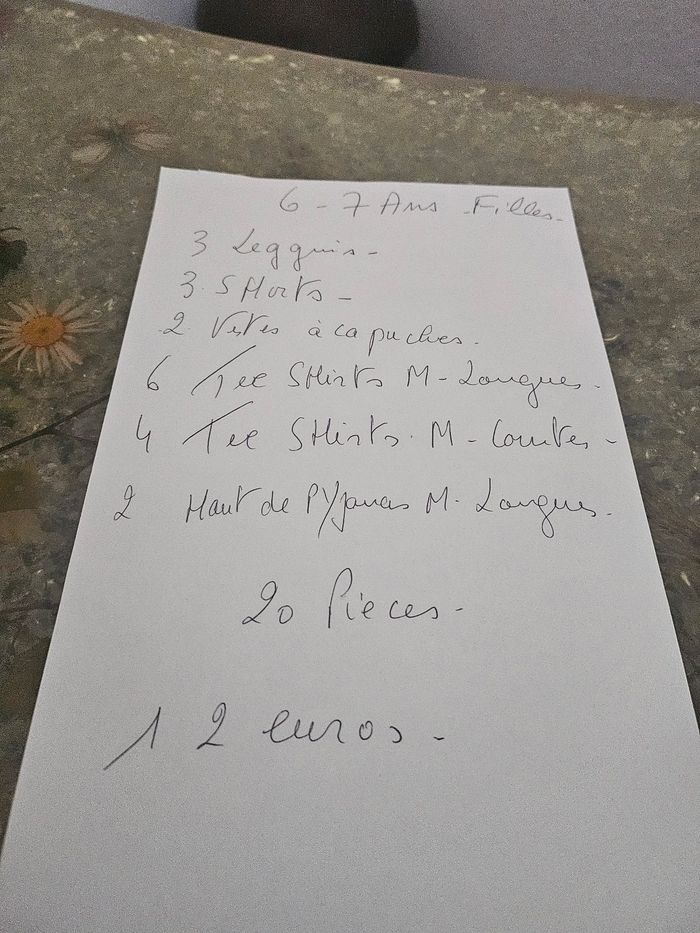 6 - 7 Ans - Filles -
3 Legguis -
3 SHorts -
2 Vestes à capuches.
6 Tee SHirts M - Longues.
4 Tee SHirts. M - Courtes -
2 Haut de Pyjamas M. Longues.
20 Pieces -
12 euros -